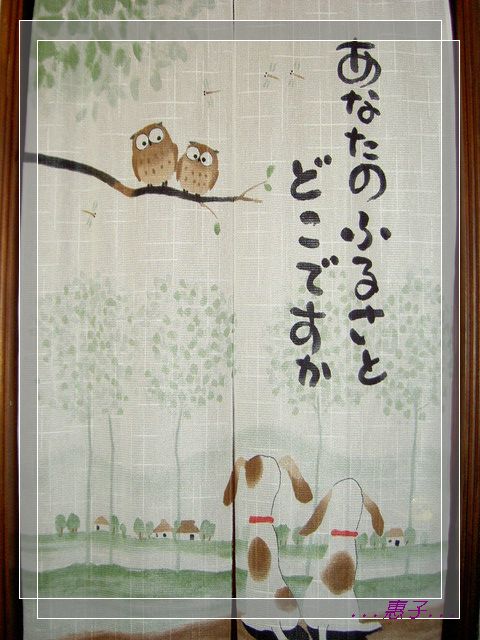 あなたのふるさと
どこですか
...惠子...